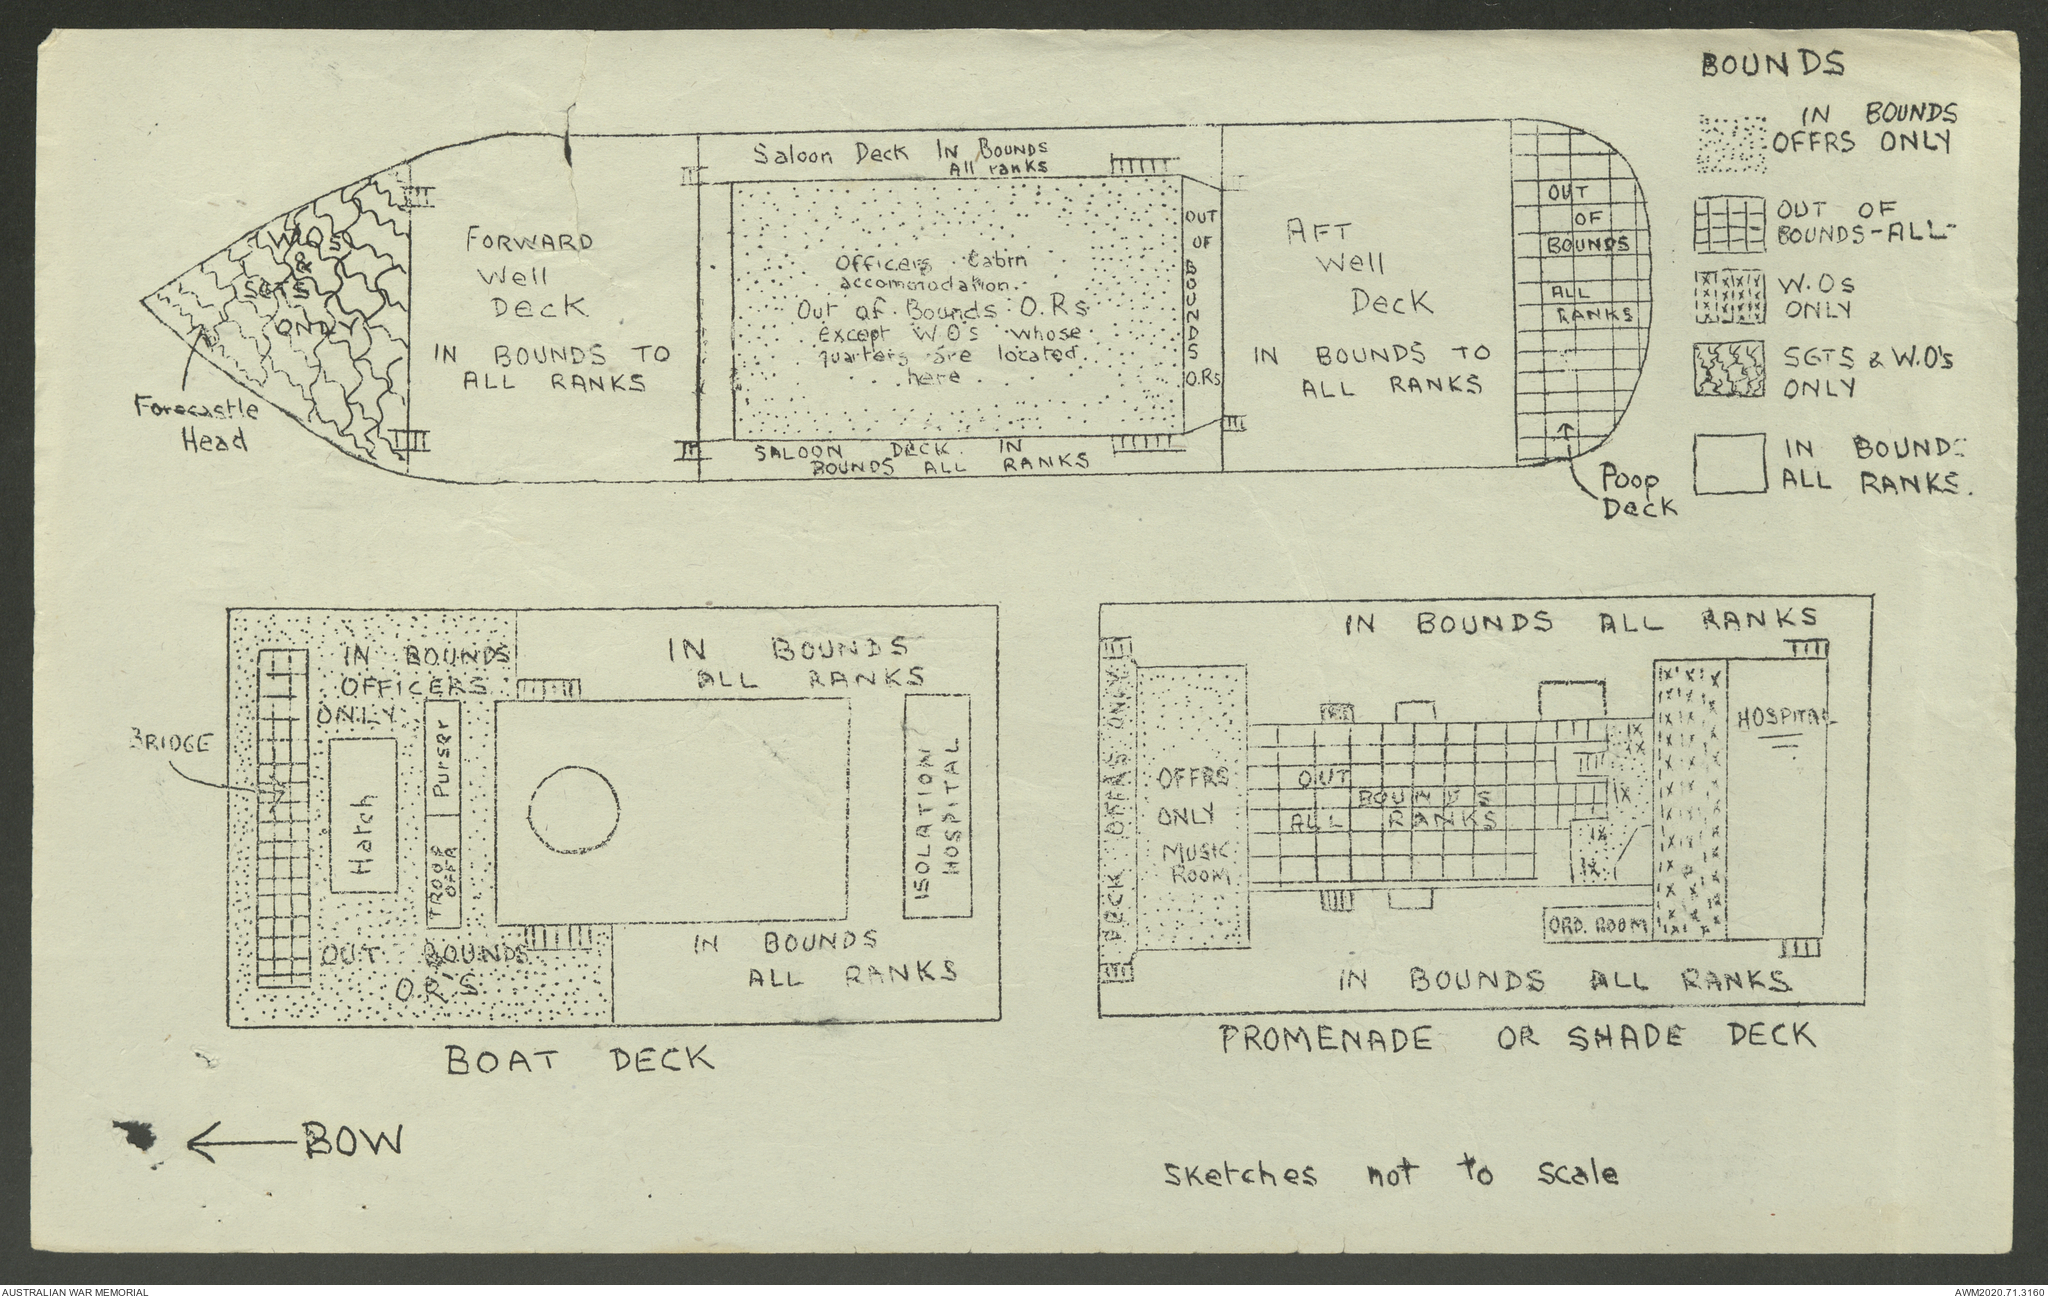 BOUNDS
IN BOUNDS
OFFRS ONLY
OUT OF
BOUNDS-ALL-
W.Os
ONLY
SGTS & W.O's
ONLY
IN BOUNDS
ALL RANKS.
Saloon Deck IN BOUNDS
All ranks
W.OS
&
SGTS
ONLY
Forecastle
Head
FORWARD
Well
DECK
IN BOUNDS TO
ALL RANKS
Officers Cabin
accommodation.
Out of Bounds O.Rs
except W.O's whose
quarters are located
here
OUT
OF
BOUNDS
O.Rs
SALOON DECK IN
BOUNDS ALL RANKS
AFT
Well
DECK
IN BOUNDS TO
ALL RANKS
OUT
OF
BOUNDS
ALL
RANKS
Poop
Deck
BRIDGE
IN BOUNDS
OFFICERS
ONLY
Hatch
Purser
TROOP
OFFR
OUT BOUNDS
O.R'S
IN BOUNDS
ALL RANKS
ISOLATION
HOSPITAL
IN BOUNDS
ALL RANKS
BOAT DECK
IN BOUNDS ALL RANKS
DECK OFFRS ONLY
OFFRS
ONLY
MUSIC
ROOM
OUT
BOUNDS
ALL RANKS
HOSPITAL
ORD. ROOM
IN BOUNDS ALL RANKS
PROMENADE OR SHADE DECK
BOW
Sketches not to scale
AUSTRALIAN WAR MEMORIAL
AWM2020.71.3160